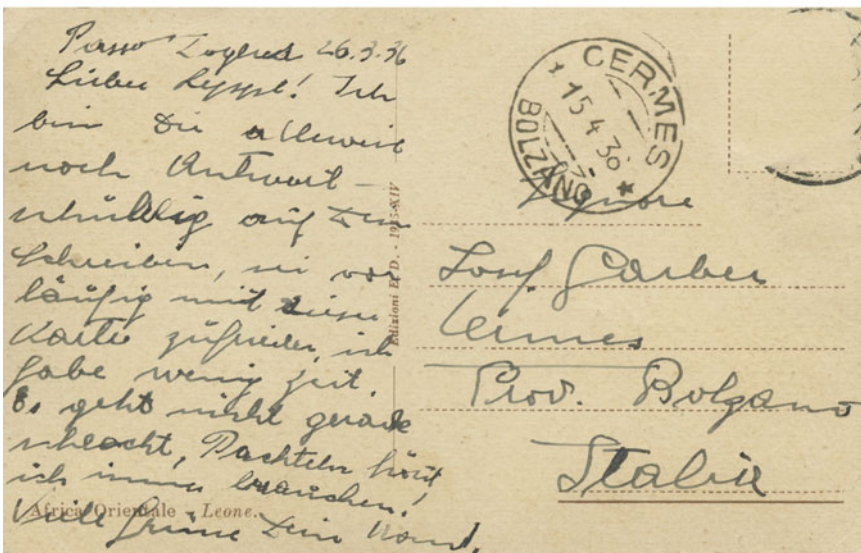 Passo 26.3.36
Lieber Ich
bin Dir
noch Antwort
schuldig auf Dein
Schreiben, sei vor
läufig mit dieser
Karte zufrieden, ich
habe wenig Zeit.
Es geht nicht gerade
schlecht,
ich immer brauchen!
Viele Grüsse Dein
Africa Orientale - Leone.
Edizioni E. D. - 1935-XIV
CERMES
15.4.36
BOLZANO
Signore
Josef Garber
Cermes
Prov. Bolzano
Italia